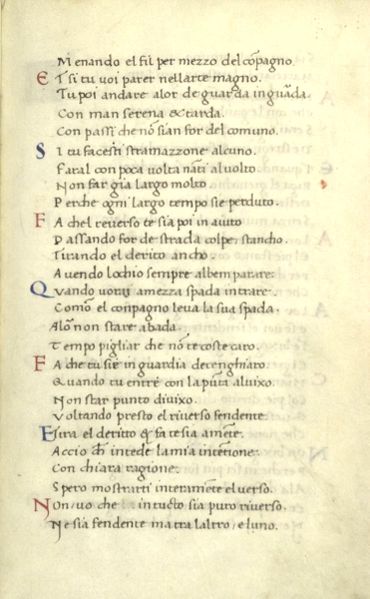 Menando el fil per mezzo del cōpagno.
Et si tu voi parer nellarte magno.
Tu poi andare alor de guarda in guād̄a.
Con man serena & tarda.
Con passi che nō sian for del comuno.
Si tu facesti stramazzone alcuno.
Faral con poca volta nāti al volto
Non far gia largo molto
Perche ogni largo tempo sie perduto.
Fa chel reverso te sia poi in aiuto
Passando for de strada colpe stancho.
Tirando el derito ancho.
Avendo lochio sempre al bem parare:
Quando vorai amezza spada intrare.
Comō el compagno leva la sua spada.
Alor non stare abada.
Tempo pigliar che nō te coste caro.
Fa che tu sie in guardia de cenghiaro.
Quando tu entrē con la pūta al vixo.
Non star punto divixo.
Voltando presto el riverso fendente.
E tira el deritto & fa te sia a mēte.
Accio ch̄ intēde la mia intētione.
Con chiara ragione.
Spero mostrarti interamēte el verso.
Non vo che in tucto sia puro riverso.
Ne sia fendente ma tra laltro / e luno.